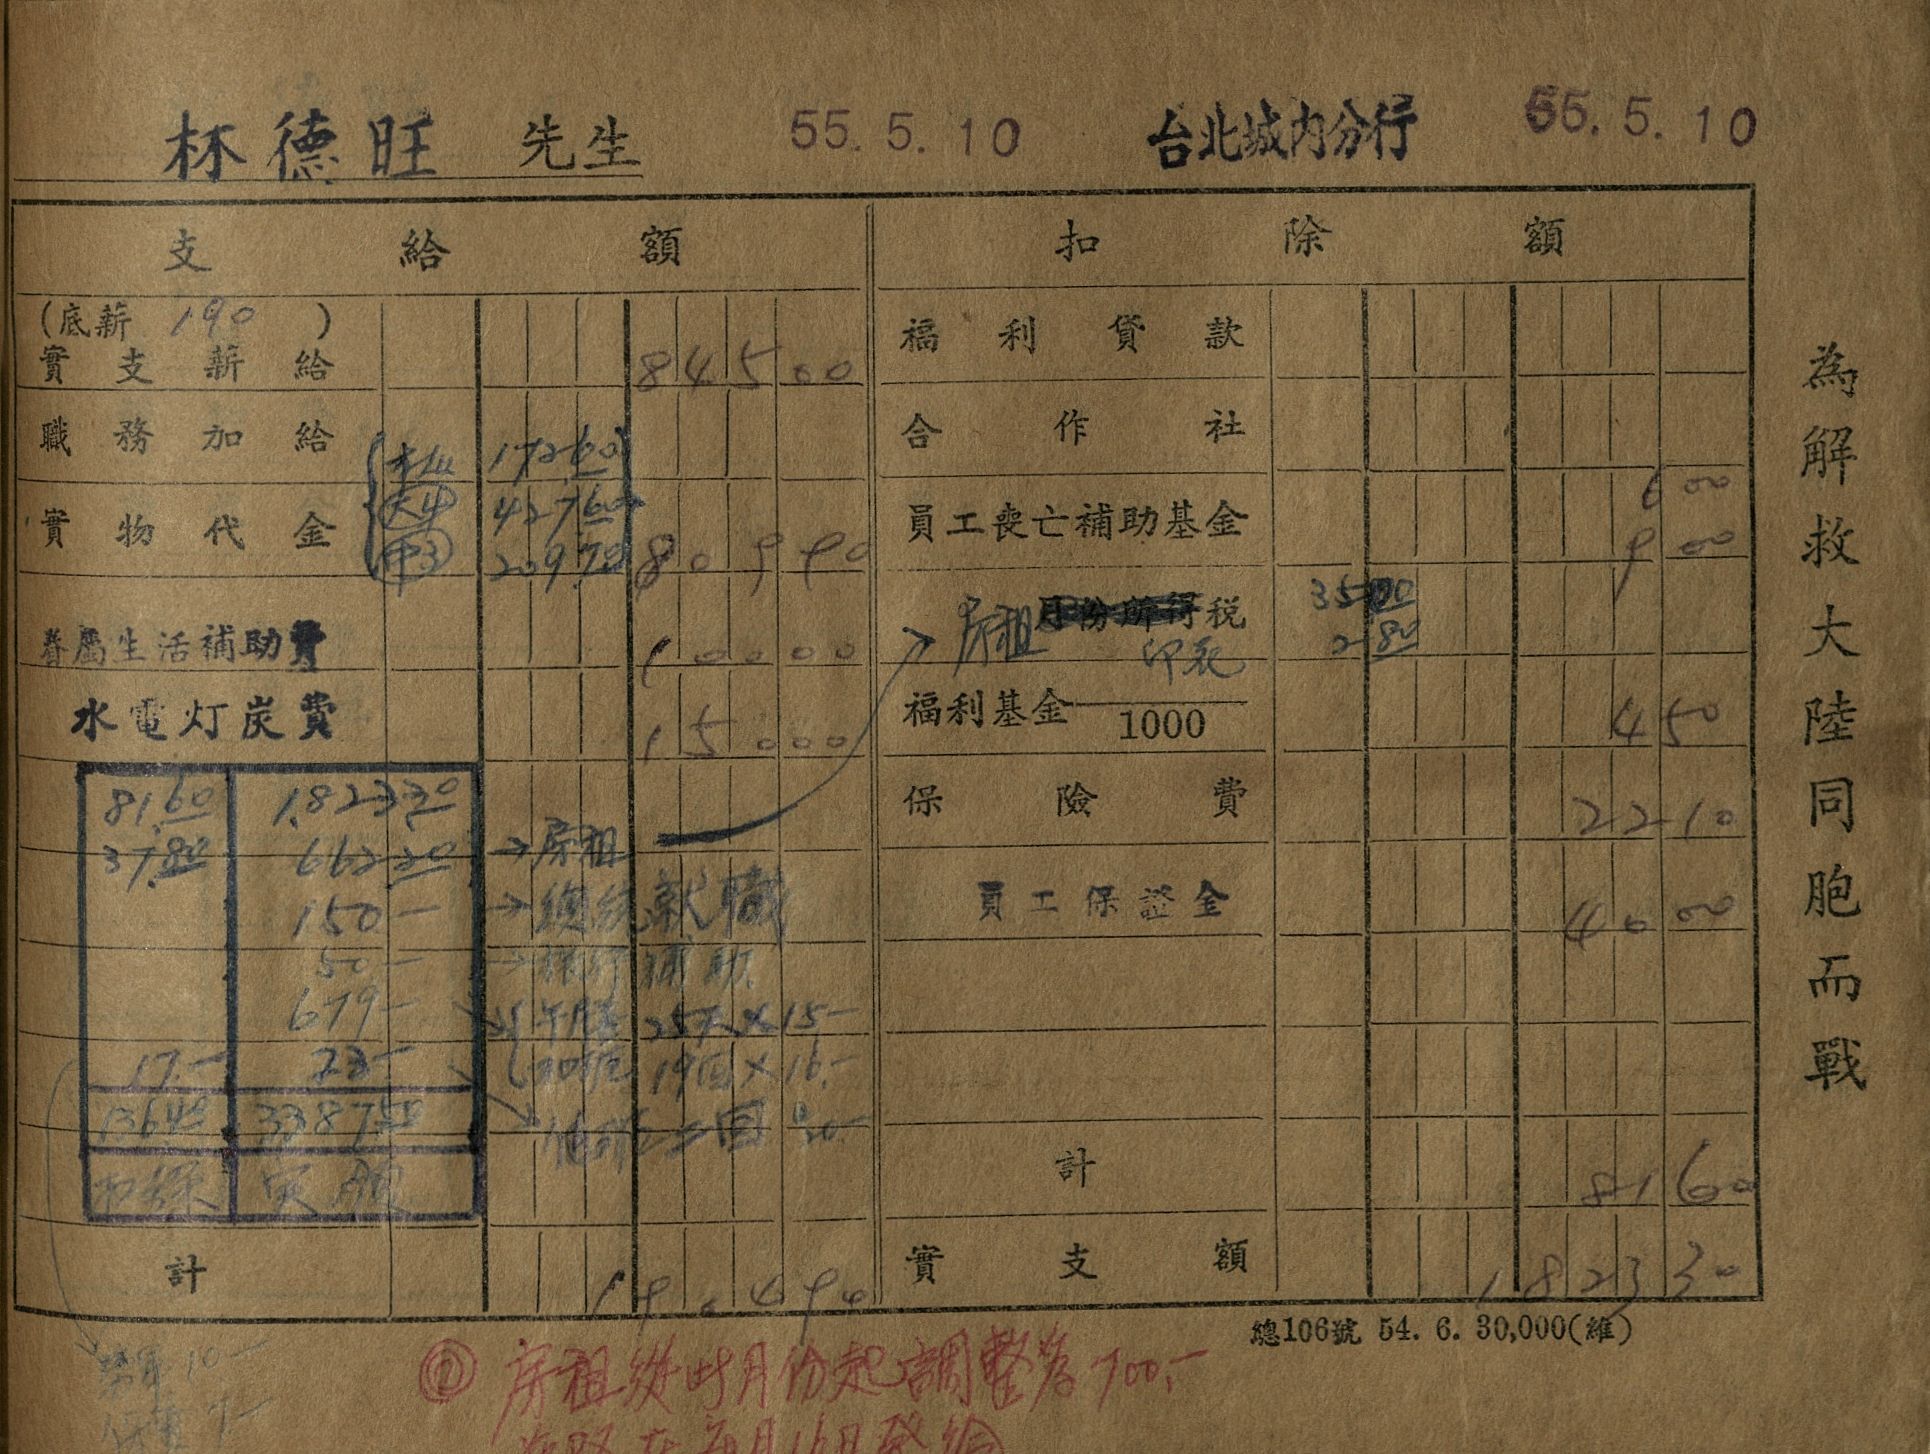 林德旺 先生 55.5.10 台北城內分行 55.5.10
支給額
(底薪 190 )
實支薪給 845 00
職務加給
本人 172 60
實物代金 大4 427 60
中3 209 70 809 90
眷屬生活補助費 100 00
水電灯炭費 150 00
81.60 1,823.30
37.80 662.20 → 房租
150 — → 總統就職
50 — → 旅行補助
679 — 午膳 25天×15—
17.— 23.— 19回×16.—
136.40 3387.50
扣除 实領
計 1904 90
扣除額
福利貸款
合作社 6 00
員工喪亡補助基金 9 00
房租 月份所得稅 35.00
印花 2.80
福利基金 1000 4 50
保險費 22 10
員工保證金 40 00
計 81 60
實支額 1823 30
為解救大陸同胞而戰
總106號 54. 6. 30,000(維)
勞軍 10.—
7—
房租從此月份起調整為700.—
在每月16日發給